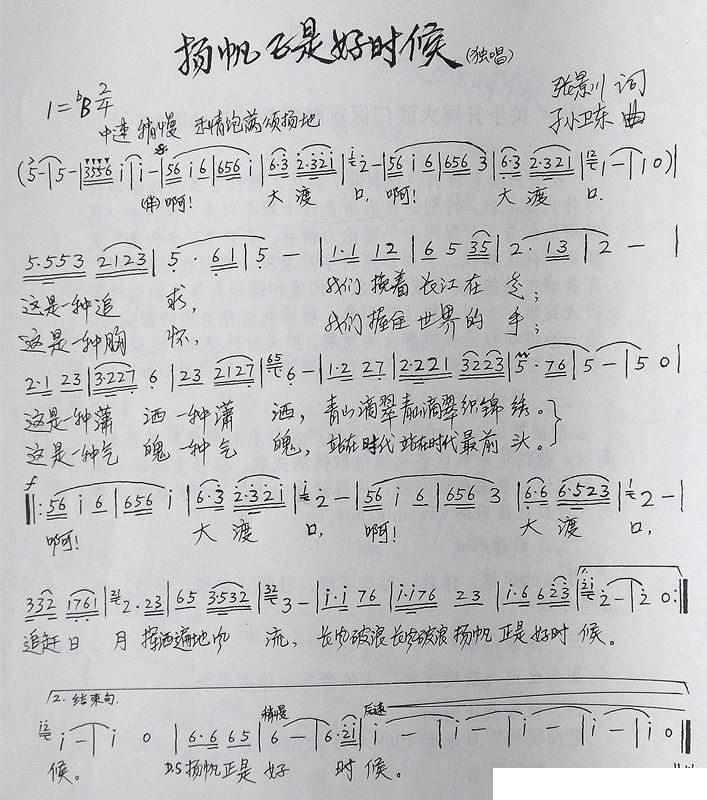 扬帆正是好时候(独唱)
1=ᵇB 2/4
张景川 词
中速 稍慢 热情饱满颂扬地
孙卫东 曲
(5 - | 5 - | 3556 i | i - | 56 i 6 | 656 i | 6·3 2·321 | 2 - | 56 i 6 | 656 3 | 6·3 2·321 | 1 - | 1 0)
(伴)啊! 大渡 口, 啊! 大渡 口.
5·553 2123 | 5·61 | 5 - | 1·1 12 | 6 5 35 | 2·13 | 2 - |
这是一种追 求, 我们 挽着 长江在 走;
这是一种胸 怀, 我们 握住 世界的 手;
2·1 23 | 3·227 6 | 23 2127 | 6 - | 1·2 27 | 2·221 3223 | 5·76 | 5 - | 5 0 |
这是一种潇 洒 一种潇 洒, 青山滴翠青山滴翠织锦 绣。
这是一种气 魄 一种气 魄, 站在时代 站在时代最前 头。
f
‖: 56 i 6 | 656 i | 6·3 2·321 | 2 - | 56 i 6 | 656 3 | 6·6 6·523 | 2 - |
啊! 大渡 口, 啊! 大渡 口,
332 1761 | 2·23 | 65 3·532 | 3 - | i·i 76 | i·176 23 | 1·6 623 | 2 - | 2 0 :‖
追赶日 月 挥洒遍地风 流, 长风破浪长风破浪 扬帆 正是好时 候。
2. 结束句.
稍慢 反速
i - | i 0 | 6·6 65 | 6 - | 6·2i | i - | i - | i - | i - | i - | i 0 ‖
候。 D.S 扬帆正是 好 时 候。